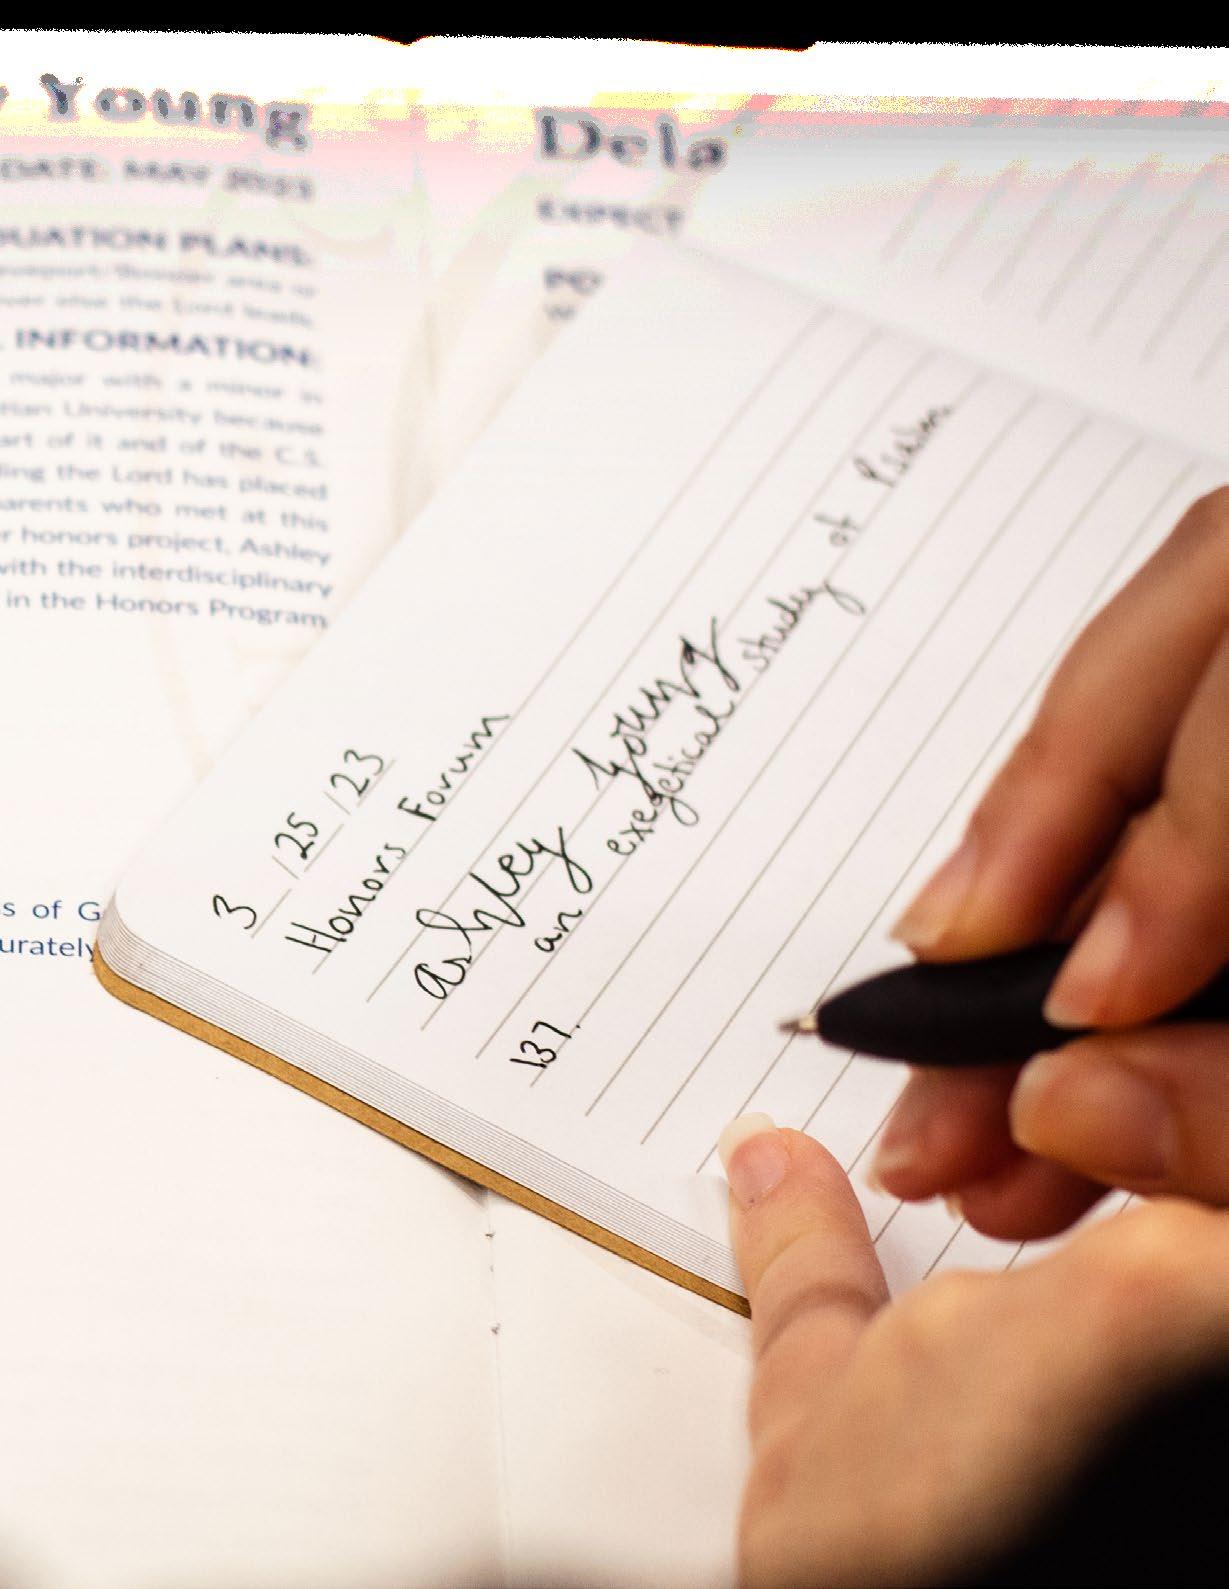 Young
DATE: MAY 2023
UATION PLANS:
area or
ever else the Lord leads.
INFORMATION:
major with a minor in
tian University because
art of it and of the C.S.
ling the Lord has placed
arents who met at this
r honors project, Ashley
with the interdisciplinary
in the Honors Program
s of G
urately
Dela
EXPECT
PO
W
3/25/23
Honors Forum
Ashley Young
an exegetical study of Psalm
137.